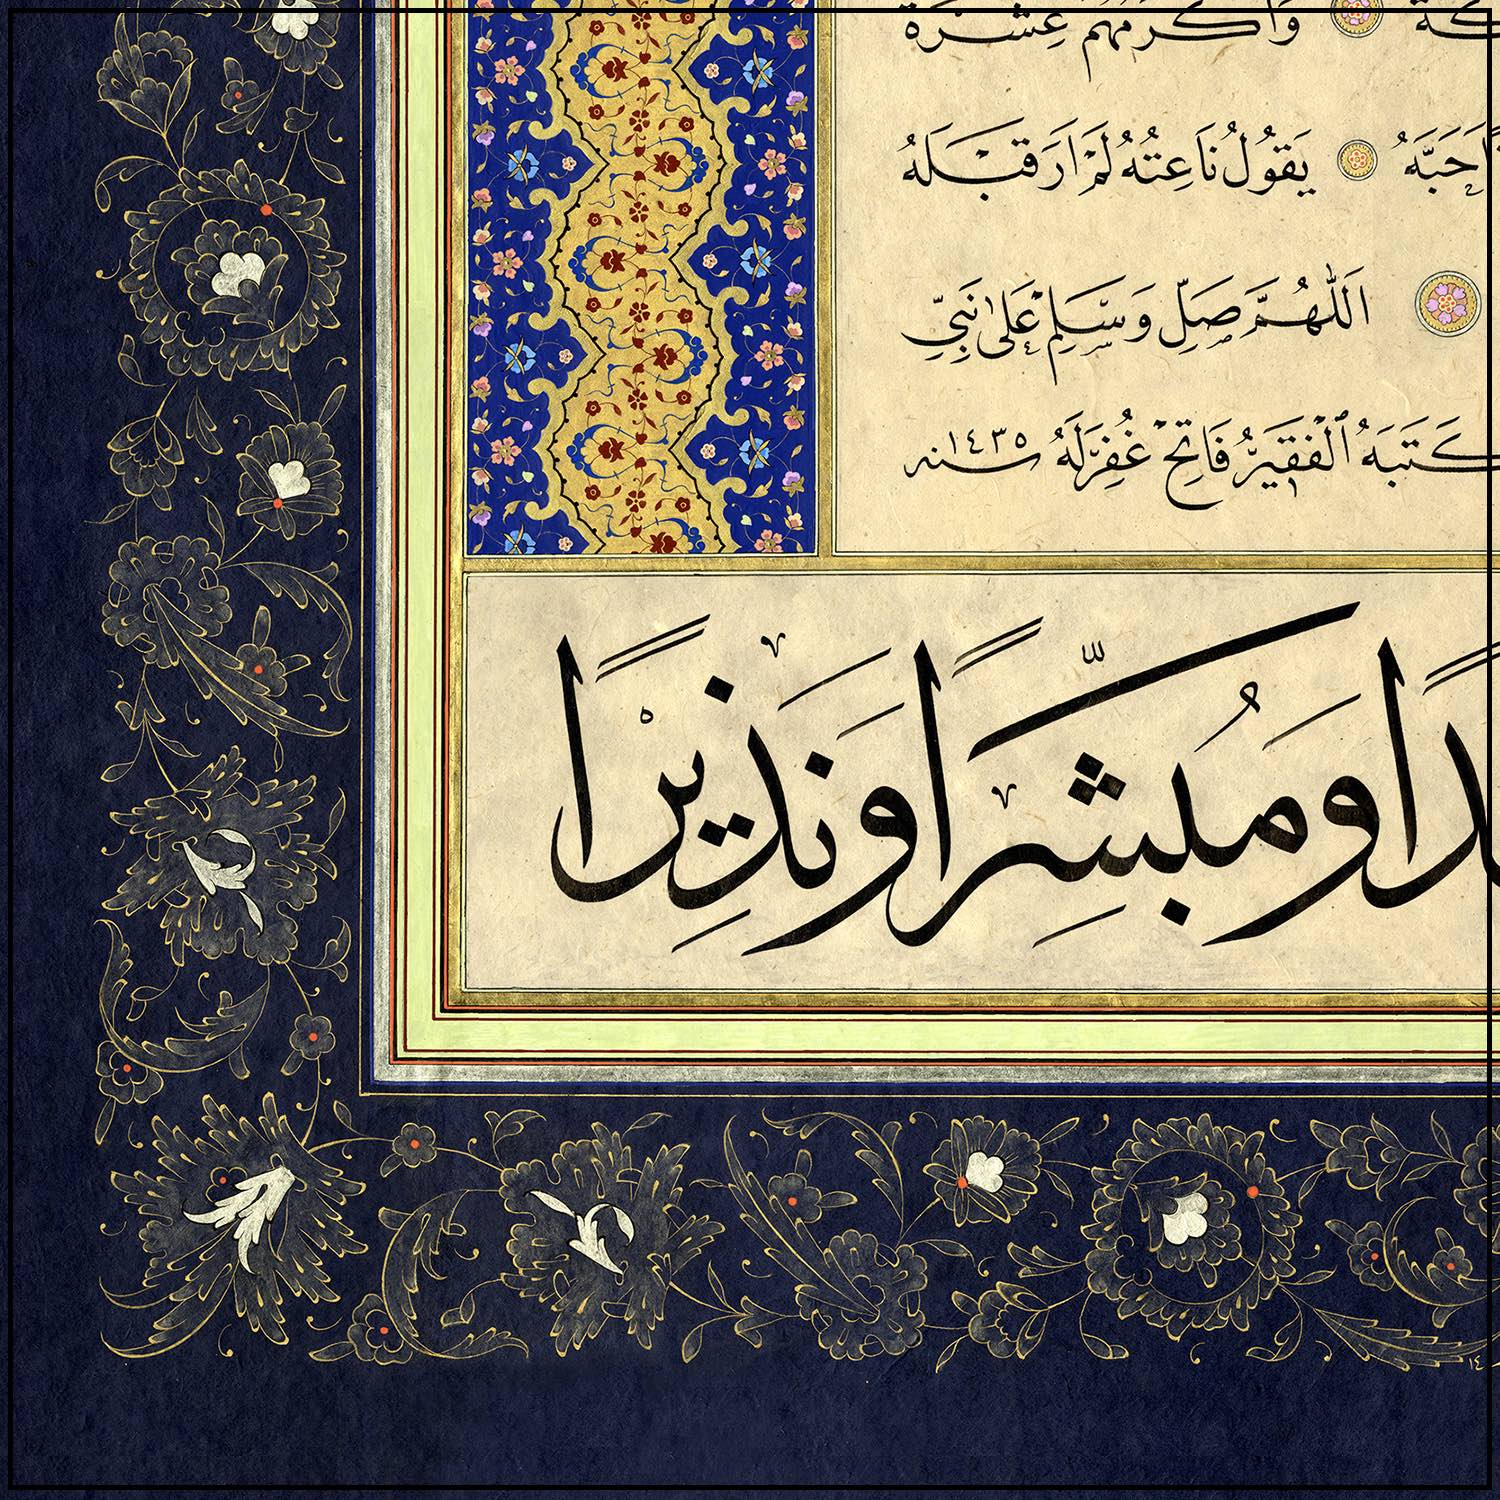 وَاَكْرَمُهُمْ عِشْرَةً
اَحَبَّهُ يَقُولُ نَاعِتُهُ لَمْ اَرَ قَبْلَهُ
اَللّٰهُمَّ صَلِّ وَسَلِّمْ عَلٰى نَبِيِّ
كَتَبَهُ الْفَقِيرُ فَاتِحْ غُفِرَ لَهُ سنه ١٤٣٥
وَمُبَشِّرًا وَنَذِيْرًا